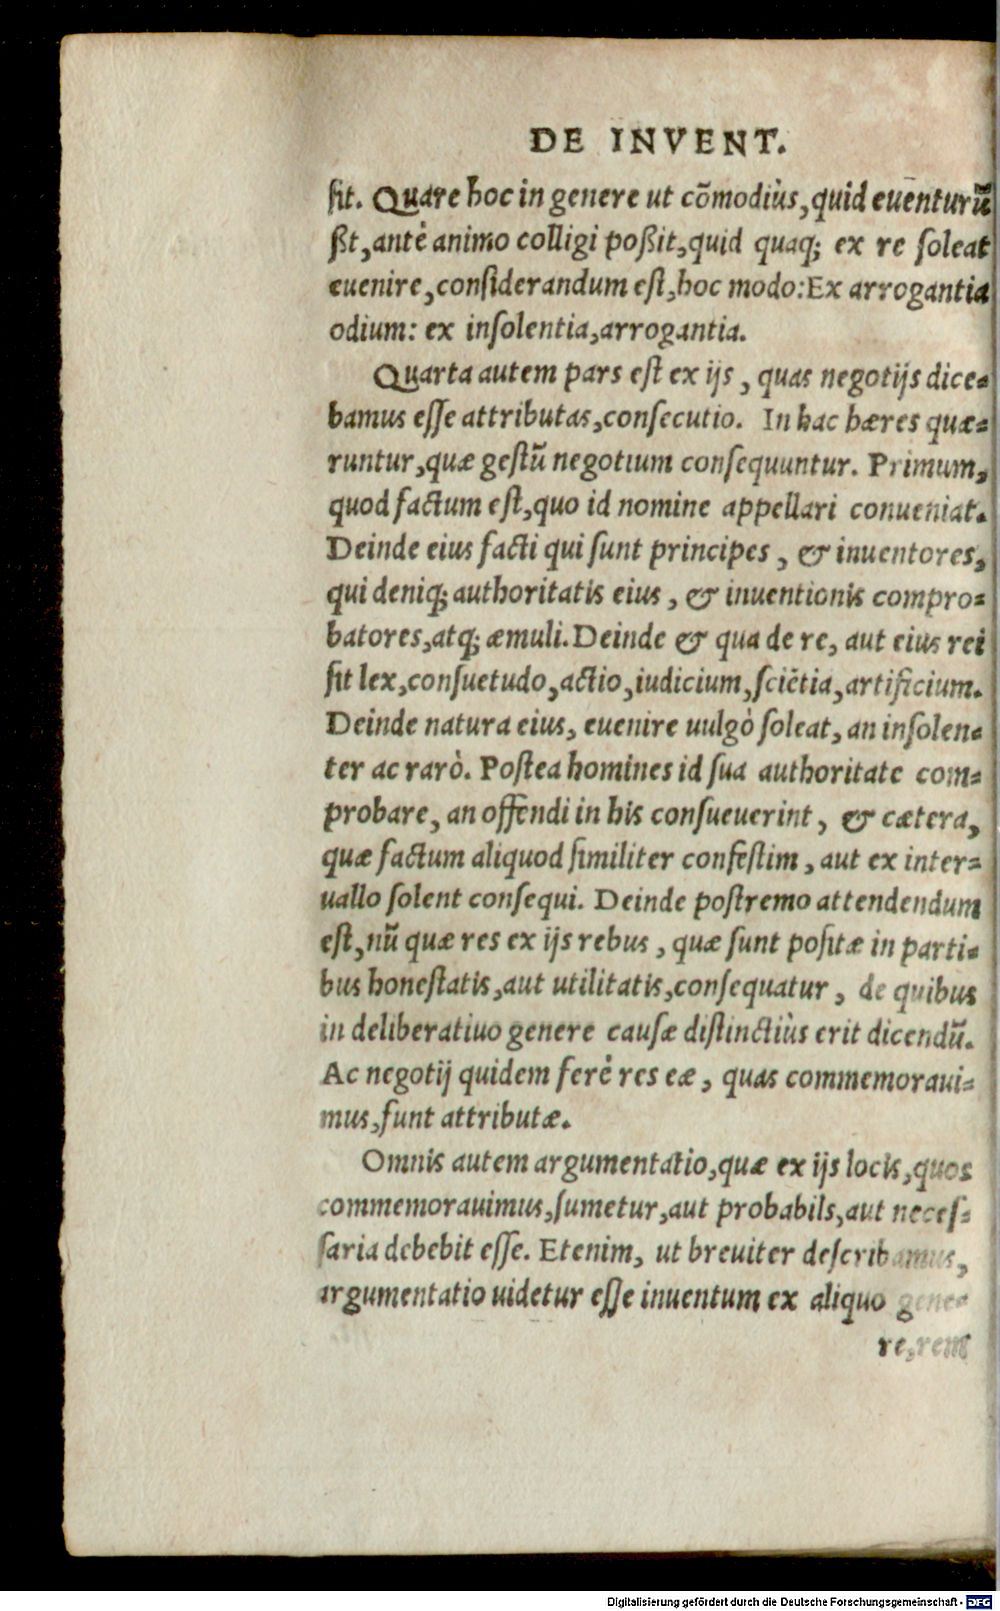 DE INVENT.
sit. Quare hoc in genere ut cõmodiùs, quid euenturũ
sit, antè animo colligi poßit, quid quaq; ex re soleat
euenire, considerandum est, hoc modo: Ex arrogantia
odium: ex insolentia, arrogantia.
Quarta autem pars est ex ijs, quas negotijs dice-
bamus esse attributas, consecutio. In hac hæ res quæ-
runtur, quæ gestũ negotium consequuntur. Primum,
quod factum est, quo id nomine appellari conueniat.
Deinde eius facti qui sunt principes, & inuentores,
qui deniq; authoritatis eius, & inuentionis compro-
batores, atq; æmuli. Deinde & qua de re, aut eius rei
sit lex, consuetudo, actio, iudicium, sciẽtia, artificium.
Deinde natura eius, euenire uulgò soleat, an insolen-
ter ac rarò. Postea homines id sua authoritate com-
probare, an offendi in his consueuerint, & cætera,
quæ factum aliquod similiter confestim, aut ex inter-
uallo solent consequi. Deinde postremo attendendum
est, nũ quæ res ex ijs rebus, quæ sunt positæ in parti-
bus honestatis, aut utilitatis, consequatur, de quibus
in deliberatiuo genere causæ distinctiùs erit dicendũ.
Ac negotij quidem ferè res eæ, quas commemoraui-
mus, sunt attributæ.
Omnis autem argumentatio, quæ ex ijs locis, quos
commemorauimus, sumetur, aut probabils, aut neces-
saria debebit esse. Etenim, ut breuiter describamus,
argumentatio uidetur esse inuentum ex aliquo gene-
re, rem
Digitalisierung gefördert durch die Deutsche Forschungsgemeinschaft - DFG